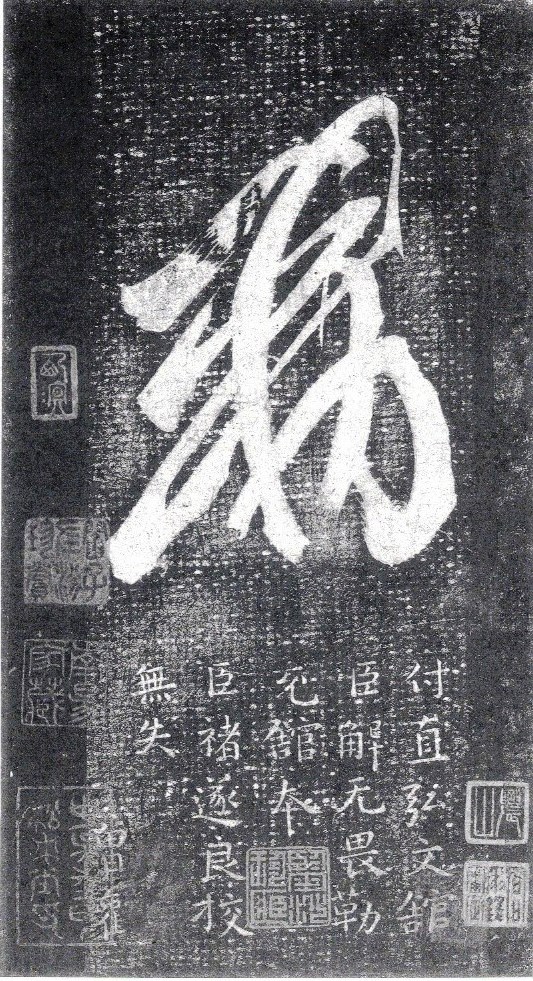 敕
付直弘文館
臣解无畏勒
充館本
臣褚遂良校
無失